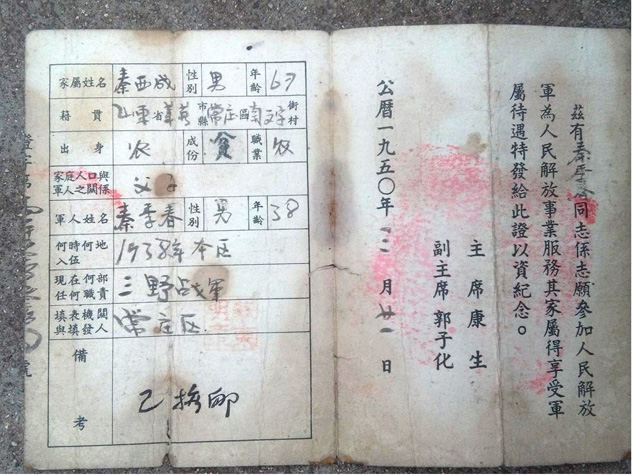 茲有秦季春同志係志願參加人民解放
軍為人民解放事業服務其家屬得享受軍
屬待遇特發給此證以資紀念。
主席康生
副主席郭子化
公曆一九五〇年 二月廿一日
家屬姓名 秦西成 性別 男 年齡 67
籍貫 山東省萊蕪市縣常庄區南文字街村
出身 农 成份 貧 職業 农
家庭人口與軍人之關係 父子
軍人姓名 秦季春 性別 男 年齡 38
何時何地入伍 1938年本区
現在何部任何職責 三野战軍
填表機關與填發人 常庄区
備考 已撫卹